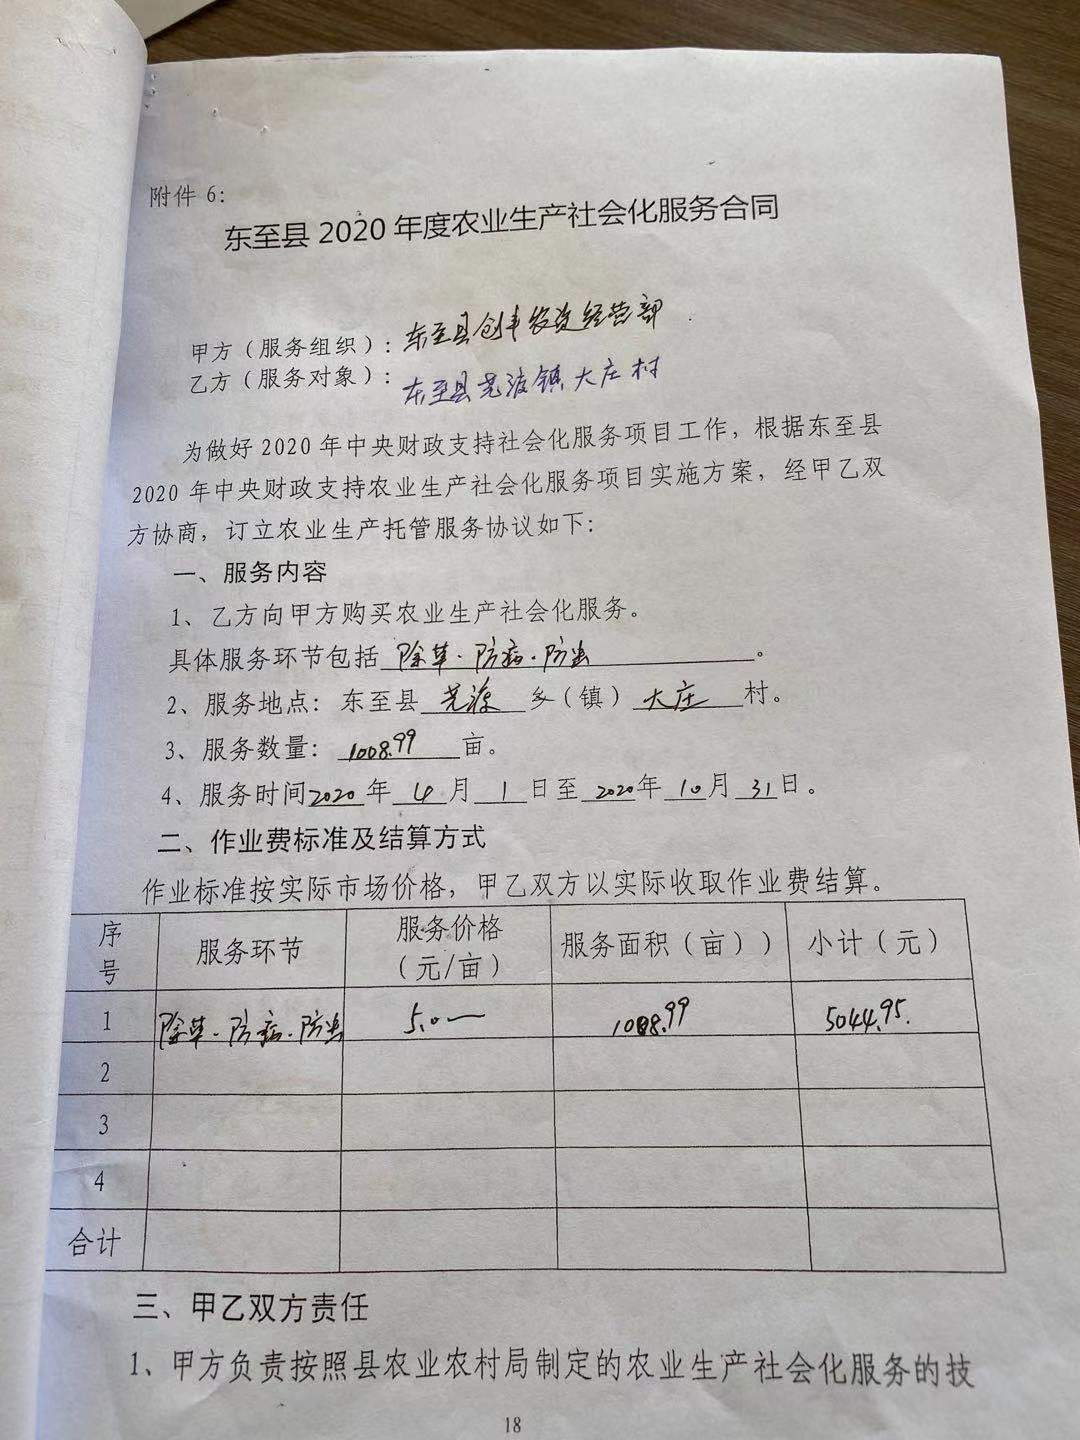 附件 6：
东至县 2020 年度农业生产社会化服务合同
甲方（服务组织）：东至县创丰农资经营部
乙方（服务对象）：东至县尧渡镇大庄村
为做好 2020 年中央财政支持社会化服务项目工作，根据东至县
2020 年中央财政支持农业生产社会化服务项目实施方案，经甲乙双
方协商，订立农业生产托管服务协议如下：
一、服务内容
1、乙方向甲方购买农业生产社会化服务。
具体服务环节包括 除草.防病.防虫 。
2、服务地点：东至县 尧渡 乡（镇） 大庄 村。
3、服务数量： 1008.99 亩。
4、服务时间 2020 年 4 月 1 日至 2020 年 10 月 31 日。
二、作业费标准及结算方式
作业标准按实际市场价格，甲乙双方以实际收取作业费结算。
序号 服务环节 服务价格（元/亩） 服务面积（亩）） 小计（元）
1 除草.防病.防虫 5.0 1008.99 5044.95.
2
3
4
合计
三、甲乙双方责任
1、甲方负责按照县农业农村局制定的农业生产社会化服务的技
18